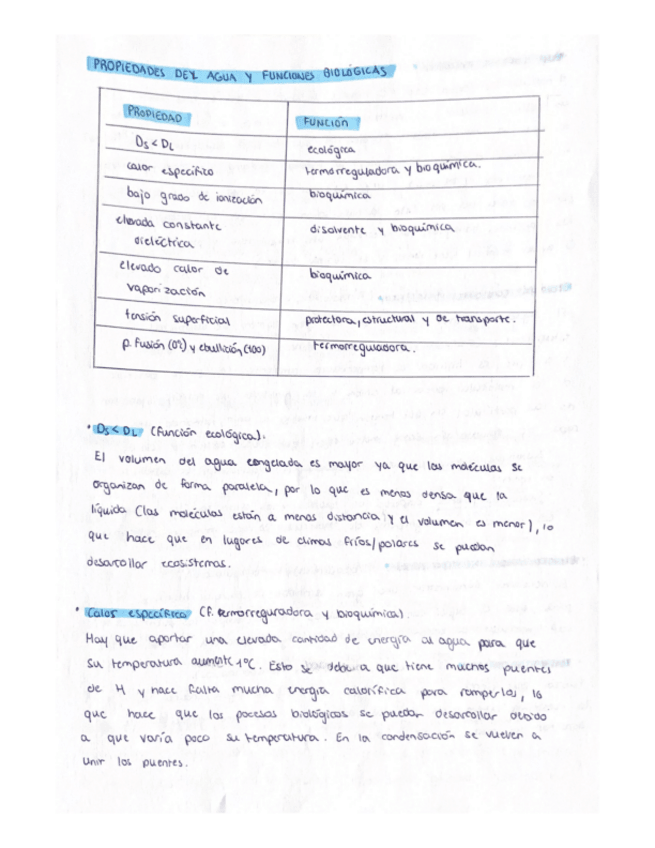 PROPIEDADES DEL AGUA Y FUNCIONES BIOLÓGICAS
PROPIEDAD FUNCIÓN
Ds < DL ecológica
calor específico termorreguladora y bioquímica.
bajo grado de ionización bioquímica
elevada constante dieléctrica disolvente y bioquímica
elevado calor de vaporización bioquímica
tensión superficial protectora, estructural y de transporte.
p. fusión (0º) y ebullición (100) termorreguladora.
• Ds < DL (función ecológica).
El volumen del agua congelada es mayor ya que las moléculas se
organizan de forma paralela, por lo que es menos densa que la
líquida (las moléculas están a menos distancia y el volumen es menor), lo
que hace que en lugares de climas fríos/polares se puedan
desarrollar ecosistemas.
• Calor específico (f. termorreguradora y bioquímica).
Hay que aportar una elevada cantidad de energía al agua para que
su temperatura aumente 1ºC. Esto se debe a que tiene muchos puentes
de H y hace falta mucha energía calorífica para romperlos, lo
que hace que los pocesos biológicos se puedan desarrollar debido
a que varía poco su temperatura. En la condensación se vuelven a
unir los puentes.